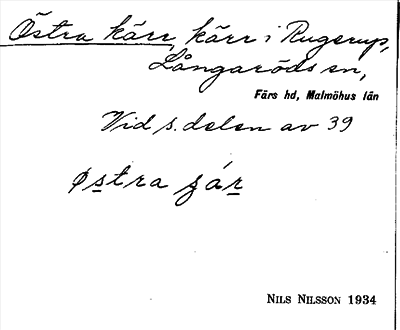 Östra kärr, kärr i Rugerup,
Långaröds sn,
Färs hd, Malmöhus län
Vid s. delen av 39
østra şár
NILS NILSSON 1934